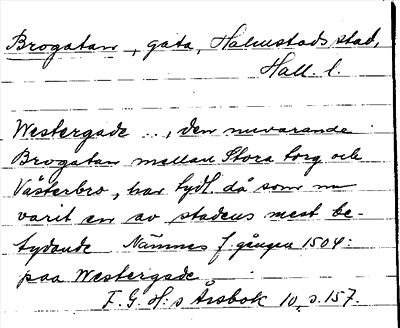 Brogatan, gata, Halmstads stad,
Hall. l.
Westergade ..., den nuvarande
Brogatan mellan Stora torg och
Västerbro, har tydl. då som nu
varit en av stadens mest be-
tydande Nämnes f. gången 1504:
paa Westergade
F. G. H:s Årsbok 10, s. 157.